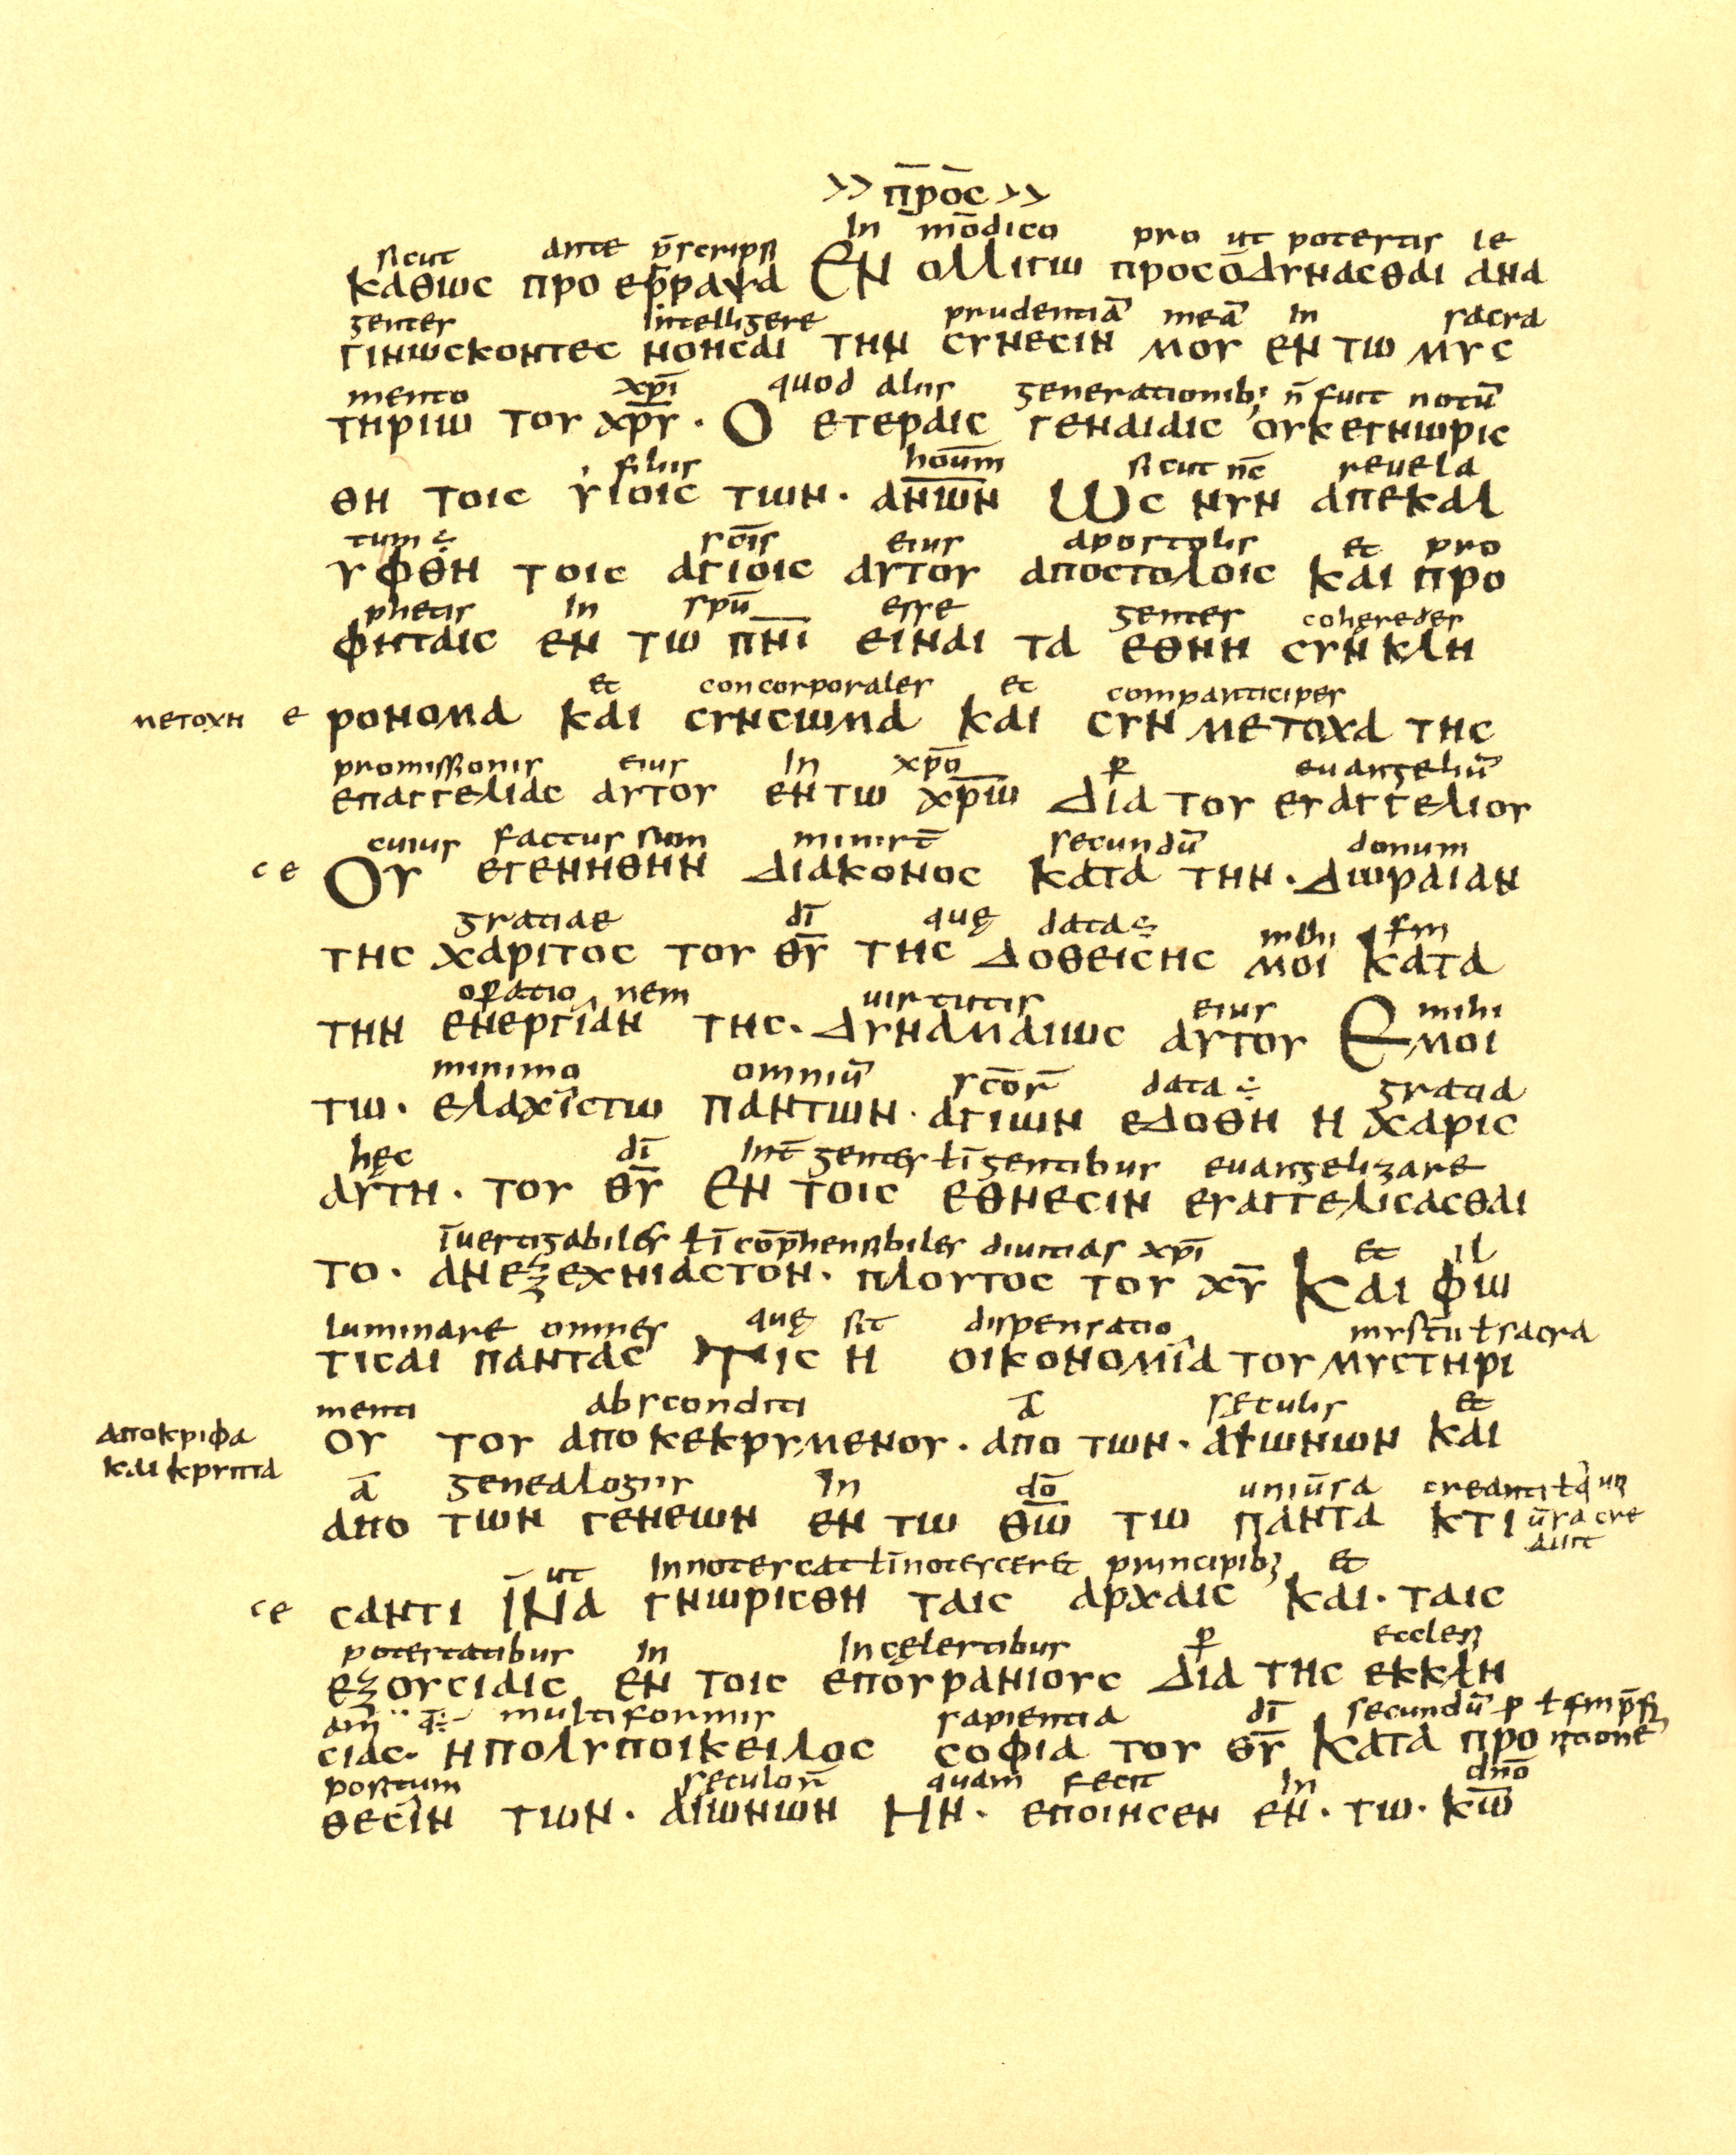 >> π̅ρο̅ς >>
sicut ante p̄scripsi In mōdico pro ut potestis le
καθως προ εγραψα Εν ολλιγω προσοδυνασθαι ανα
gentes intelligere prudentiā meā in sacra
γινωσκοντες νοησαι την συνεσιν μου εν τω μυς
mento xp̄i quod aliis generationib; n̄ fuit notū
τηριω του χρ̅υ · Ο ετεραις γεναιαις ουκ εγνωρις
filiis hoūm sicut nc̄ reuela
θη τοις υιοις των · αν̅ω̅ν Ως νυν απεκαλ
tum ÷ sc̄is eius apostolis et pro
υφθη τοις αγιοις αυτου αποστολοις και προ
phetis in spū esse gentes coheredes
φηταις εν τω πν̅ι ειναι τα εθνη συνκλη
et concorporales et comparticipes
μετοχη ε ρονομα και συνσωμα και συν μετοχα της
promissionis eius in xp̄o p̱ euangeliū
επαγγελιας αυτου εν τω χρ̅ω δια του ευαγγελιου
cuius factus sum minist̄ secundū donum
c e Ου εγενηθην διακονος κατα την · δωραιαν
gratiae dī quę data ÷ mihi sm
της χαριτος του θ̅υ της δοθεισης μοι κατα
op̱atio nem uirtutis eius mihi
την ενεργιαν της · δυναμαιως αυτου Εμοι
minimo omniū sc̄oȓ data ÷ gratia
τω · ελαχιστω παντων · αγιων εδοθη η χαρις
hęc dī int̄ gentes ł ī gentibus euangelizare
αυτη · του θ̅υ Εν τοις εθνεσιν ευαγγελισασθαι
īuestigabiles ł īcōp̄hensibiles diuitias xp̄i et il
το · ανεξεχνιαστον · πλουτος του χ̅υ Και φω
luminare omnes quę sit dispensatio myst̄ii ł sacra
τισαι παντας Τις η οικονομια του μυστηρι
menti absconditi ā seculis et
αποκριφα
και κρυπτα
ου του αποκεκρυμενου · απο των · αιωνιων και
ā genealogiis in dō uniūsa creanti
απο των γενεων εν τω θ̅ω τω παντα κτι
ut Innotescat ł īnotesceret principib; et
c e σαντι ΙΝα γνωρισθη ταις αρχαις και · ταις
potestatibus in In cęlestibus p̱ eccles
εξουσιαις εν τοις επουρανιους δια της εκκλη
am multiformis sapientia dī secundū
σιας · η πολυποικειλος σοφια του θ̅υ Κατα προ
positum seculoȓ quam fecit in dn̄o
θεσιν των · αιωνιων Ην · εποιησεν εν · τω · κ̅ω